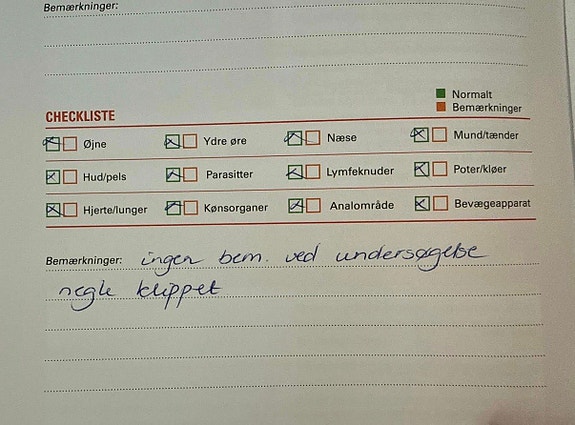 Bemærkninger:
Normalt
Bemærkninger
CHECKLISTE
Øjne Ydre øre Næse Mund/tænder
Hud/pels Parasitter Lymfeknuder Poter/kløer
Hjerte/lunger Kønsorganer Analområde Bevægeapparat
Bemærkninger: ingen bem. ved undersøgelse
negle klippet